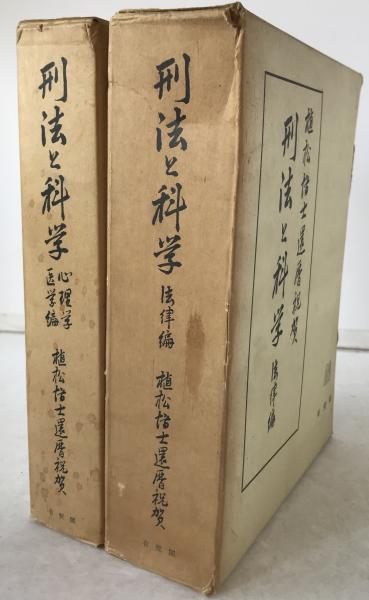 刑法と科学
心理学
医学編
植松博士還暦祝賀
有斐閣
刑法と科学
法律編
植松博士還暦祝賀
有斐閣
植松博士還暦祝賀
刑法と科学
法律編
有斐閣